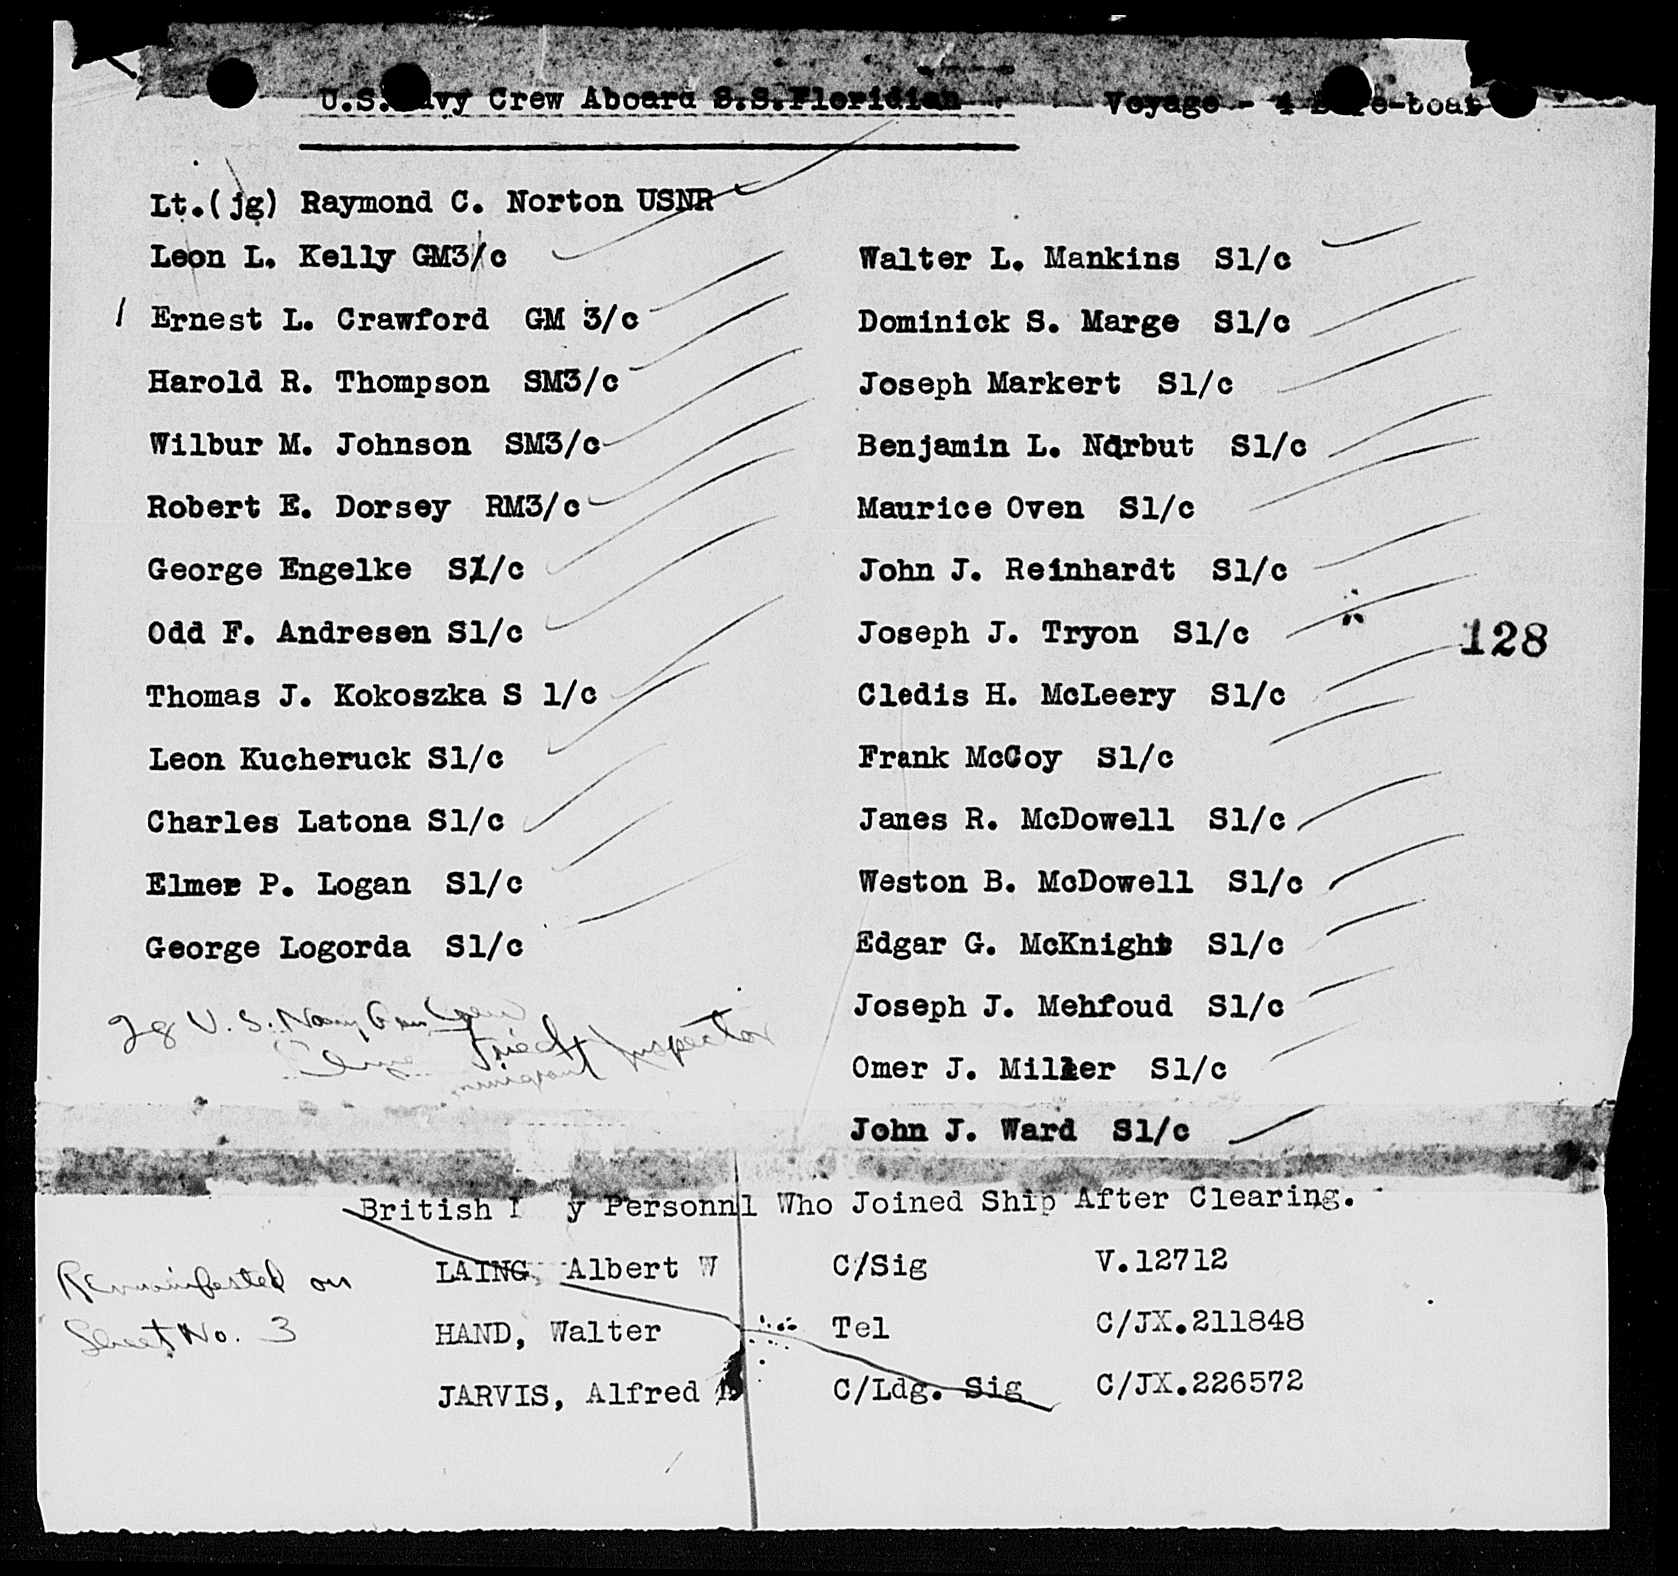 U.S. Navy Crew Aboard S.S.Floridian Voyage - 4 Bare-boat
Lt.(jg) Raymond C. Norton USNR
Leon L. Kelly GM3/c
Ernest L. Crawford GM 3/c
Harold R. Thompson SM3/c
Wilbur M. Johnson SM3/c
Robert E. Dorsey RM3/c
George Engelke S1/c
Odd F. Andresen S1/c
Thomas J. Kokoszka S 1/c
Leon Kucheruck S1/c
Charles Latona S1/c
Elmer P. Logan S1/c
George Logorda S1/c
Walter L. Mankins S1/c
Dominick S. Marge S1/c
Joseph Markert S1/c
Benjamin L. Norbut S1/c
Maurice Oven S1/c
John J. Reinhardt S1/c
Joseph J. Tryon S1/c
128
Cledis H. McLeery S1/c
Frank McCoy S1/c
Janes R. McDowell S1/c
Weston B. McDowell S1/c
Edgar G. McKnight S1/c
Joseph J. Mehfoud S1/c
Omer J. Miller S1/c
John J. Ward S1/c
28 U.S. Navy Gun Crew
Immigrant Inspector
British y Personnl Who Joined Ship After Clearing.
LAING, Albert W C/Sig V.12712
HAND, Walter Tel C/JX.211848
JARVIS, Alfred C/Ldg. Sig C/JX.226572
Remanifested on
Sheet No. 3